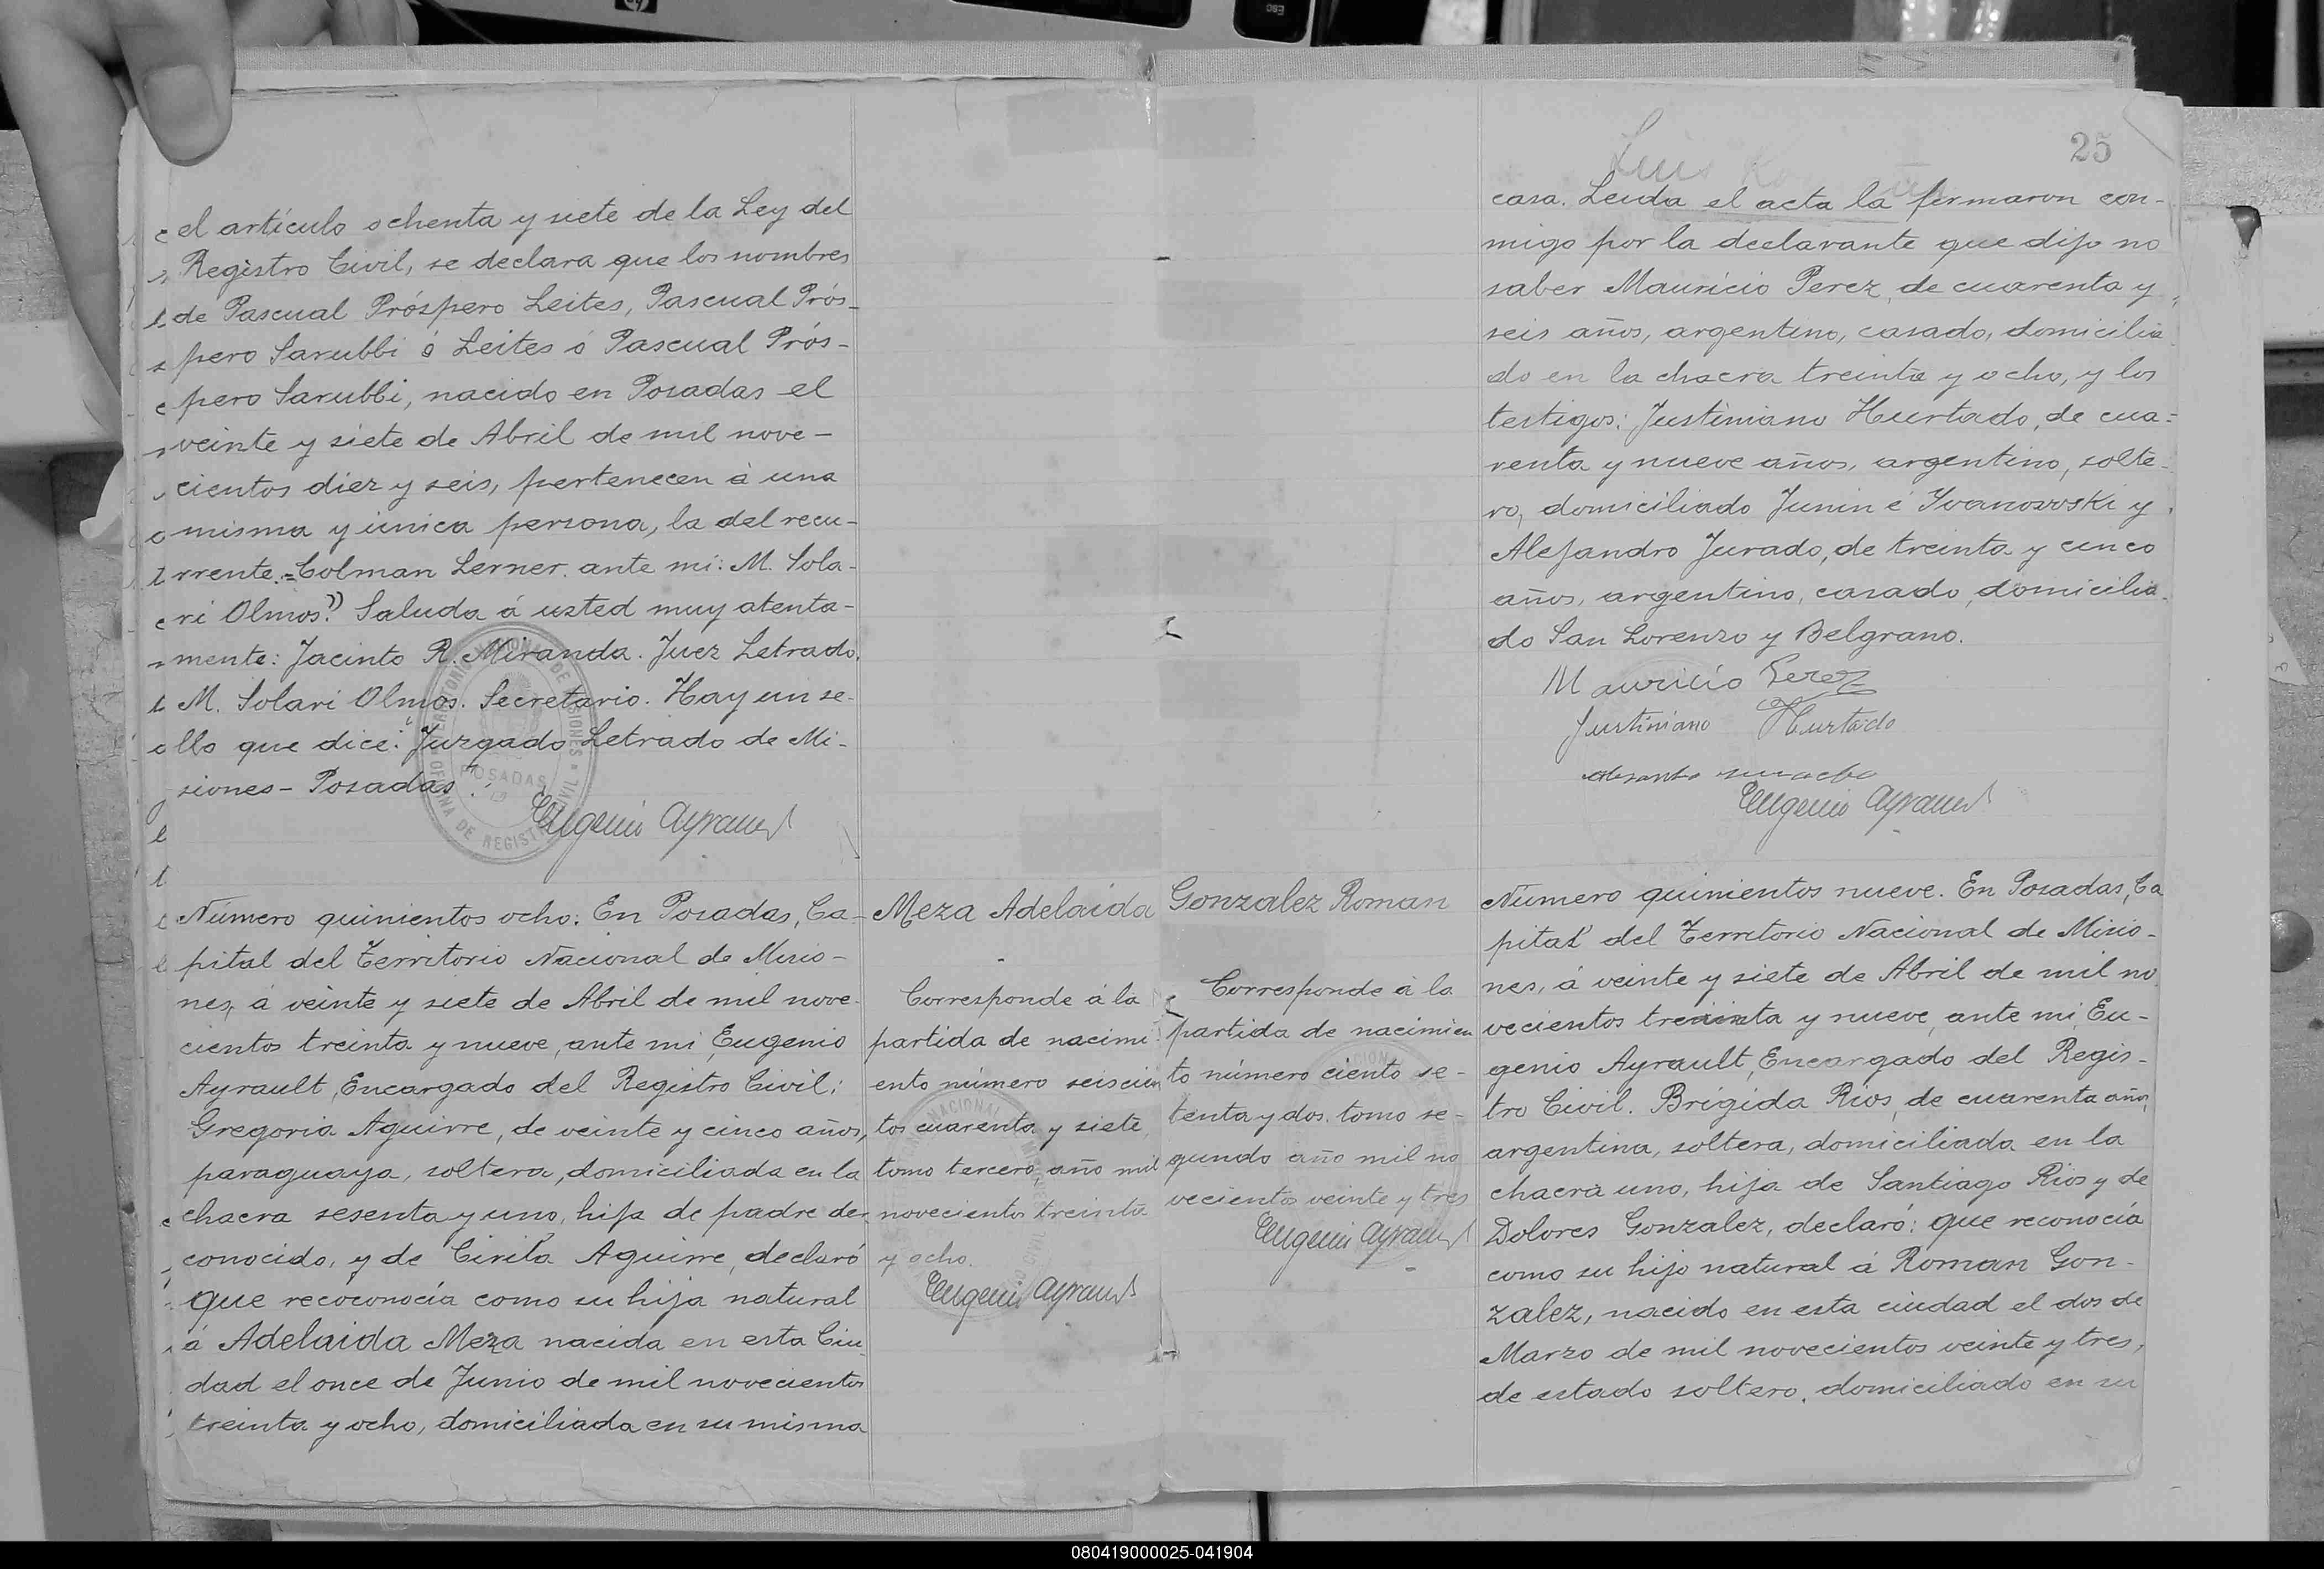 el artículo ochenta y siete de la Ley del
Registro Civil, se declara que los nombres
de Pascual Próspero Leites, Pascual Prós-
pero Sarubbi ó Leites ó Pascual Prós-
pero Sarubbi, nacido en Posadas el
veinte y siete de Abril de mil nove-
cientos diez y seis, pertenecen à una
misma y única persona, la del recu-
rrente.=Colman Lerner. ante mi: M. Sola-
ri Olmos." Saluda á usted muy atenta-
mente: Jacinto R. Miranda. Juez Letrado.
M. Solari Olmos. Secretario. Hay un se-
llo que dice: "Juzgado Letrado de Mi-
siones - Posadas".
Eugenio Ayrault
POSADAS
Número quinientos ocho: En Posadas, Ca-
pital del Territorio Nacional de Misio-
nes, á veinte y siete de Abril de mil nove-
cientos treinta y nueve, ante mi, Eugenio
Ayrault, Encargado del Registro Civil:
Gregoria Aguirre, de veinte y cinco años,
paraguaya, soltera, domiciliada en la
chacra sesenta y uno, hija de padre des-
conocido, y de Cirila Aguirre, declaró
que recoconocía como su hija natural
á Adelaida Meza nacida en esta Ciu-
dad el once de Junio de mil novecientos
treinta y ocho, domiciliada en su misma
Meza Adelaida
Corresponde á la
partida de nacimi-
ento número seiscien
tos cuarenta y siete
tomo tercero, año mil
novecientos treinta
y ocho.
Eugenio Ayrault
Gonzalez Roman
Corresponde à la
partida de nacimien
to número ciento se-
tenta y dos. tomo se-
gundo año mil no
vecientos veinte y tres
Eugenio Ayrault
25
Luis
casa. Leida el acta la firmaron con-
migo por la declarante que dijo no
saber Mauricio Perez, de cuarenta y
seis años, argentino, casado, domicilia
do en la chacra treinta y ocho, y los
testigos: Justiniano Hurtado, de cua-
renta y nueve años, argentino, solte-
ro, domiciliado Junin é Yvanowski y
Alejandro Jurado, de treinta y cinco
años, argentino, casado, domicilia-
do San Lorenzo y Belgrano.
Mauricio Perez
Justiniano Hurtado
Eugenio Ayrault
Número quinientos nueve. En Posadas, Ca
pital del Territorio Nacional de Misio-
nes, á veinte y siete de Abril de mil no
vecientos treinta y nueve, ante mi, Eu-
genio Ayrault, Encargado del Regis-
tro Civil. Brigida Rios, de cuarenta años,
argentina, soltera, domiciliada en la
chacra uno, hija de Santiago Rios y de
Dolores Gonzalez, declaró: que reconocía
como su hijo natural á Roman Gon-
zalez, nacido en esta ciudad el dos de
Marzo de mil novecientos veinte y tres,
de estado soltero, domiciliado en su
080419000025-041904